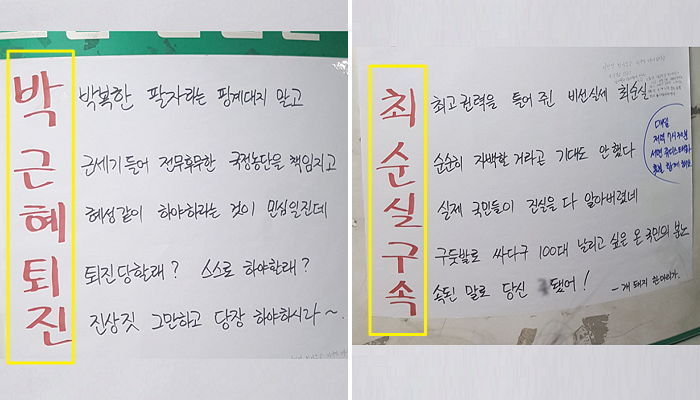 박 박복한 팔자라는 핑계대지 말고
근 근세기들어 전무후무한 국정농단을 책임지고
혜 혜성같이 하야하라는 것이 민심일진데
퇴 퇴진당할래? 스스로 하야할래?
진 진상짓 그만하고 당장 하야하시라~.
최 최고권력을 들어 준 비선실세 최순실
순 순순히 자백한 거라곤 기대도 안했다
실 실제 국민들이 진실을 다 알아버렸네
구 구둣발로 싸다구 100대 날리고 싶은 온 국민의 분노
속 속된 말로 당신 됐어!
- 개 돼지 한마리가.
매일
저녁 7시